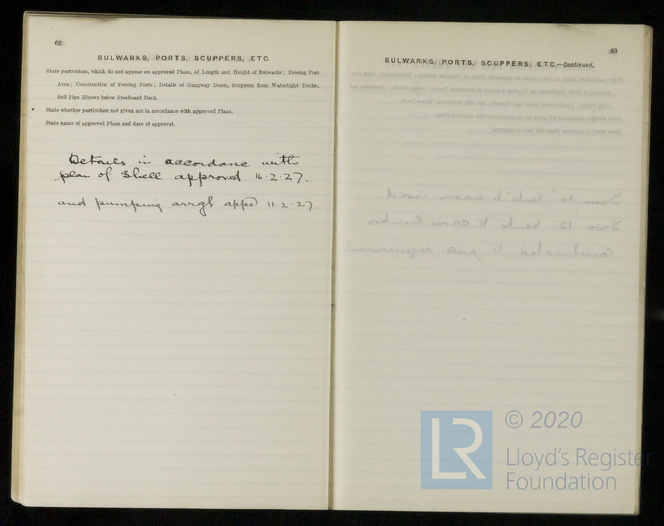 62
BULWARKS, PORTS, SCUPPERS, ETC.
State particulars, which do not appear on approved Plans, of Length and Height of Bulwarks; Freeing Port
Area; Construction of Freeing Ports; Details of Gangway Doors, Scuppers from Watertight Decks;
Soil Pipe Elbows below Freeboard Deck.
State whether particulars not given are in accordance with approved Plans.
State name of approved Plans and date of approval.
Details in accordance with
plan of Shell approved 16-2-27.
and pumping arrgt appd 11-2-27.
63
BULWARKS, PORTS, SCUPPERS, ETC.—Continued.
LR
© 2020
Lloyd's Register
Foundation